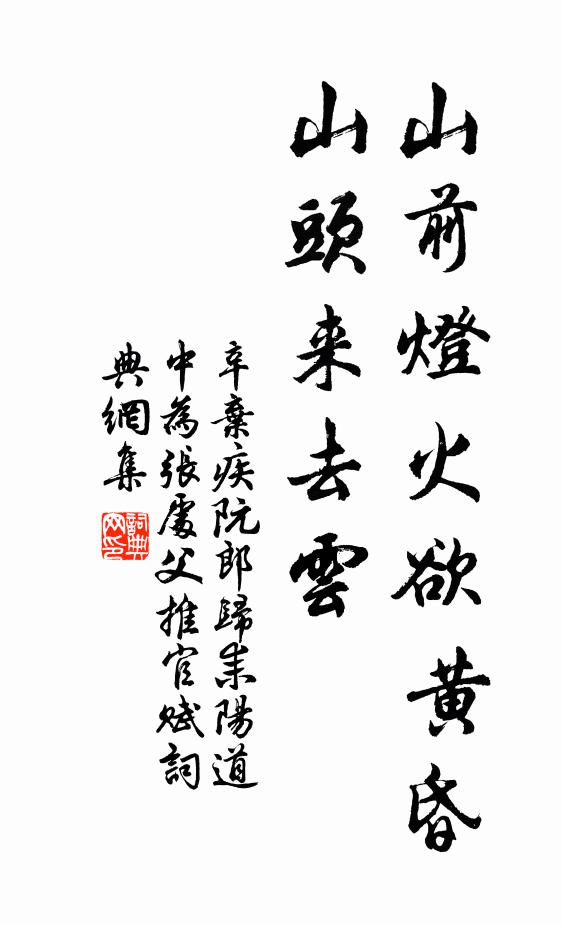 山前燈火欲黄昏
山頭来去雲
辛棄疾阮郎歸耒陽道
中為張處父推官賦詞
典網集
詞典網印